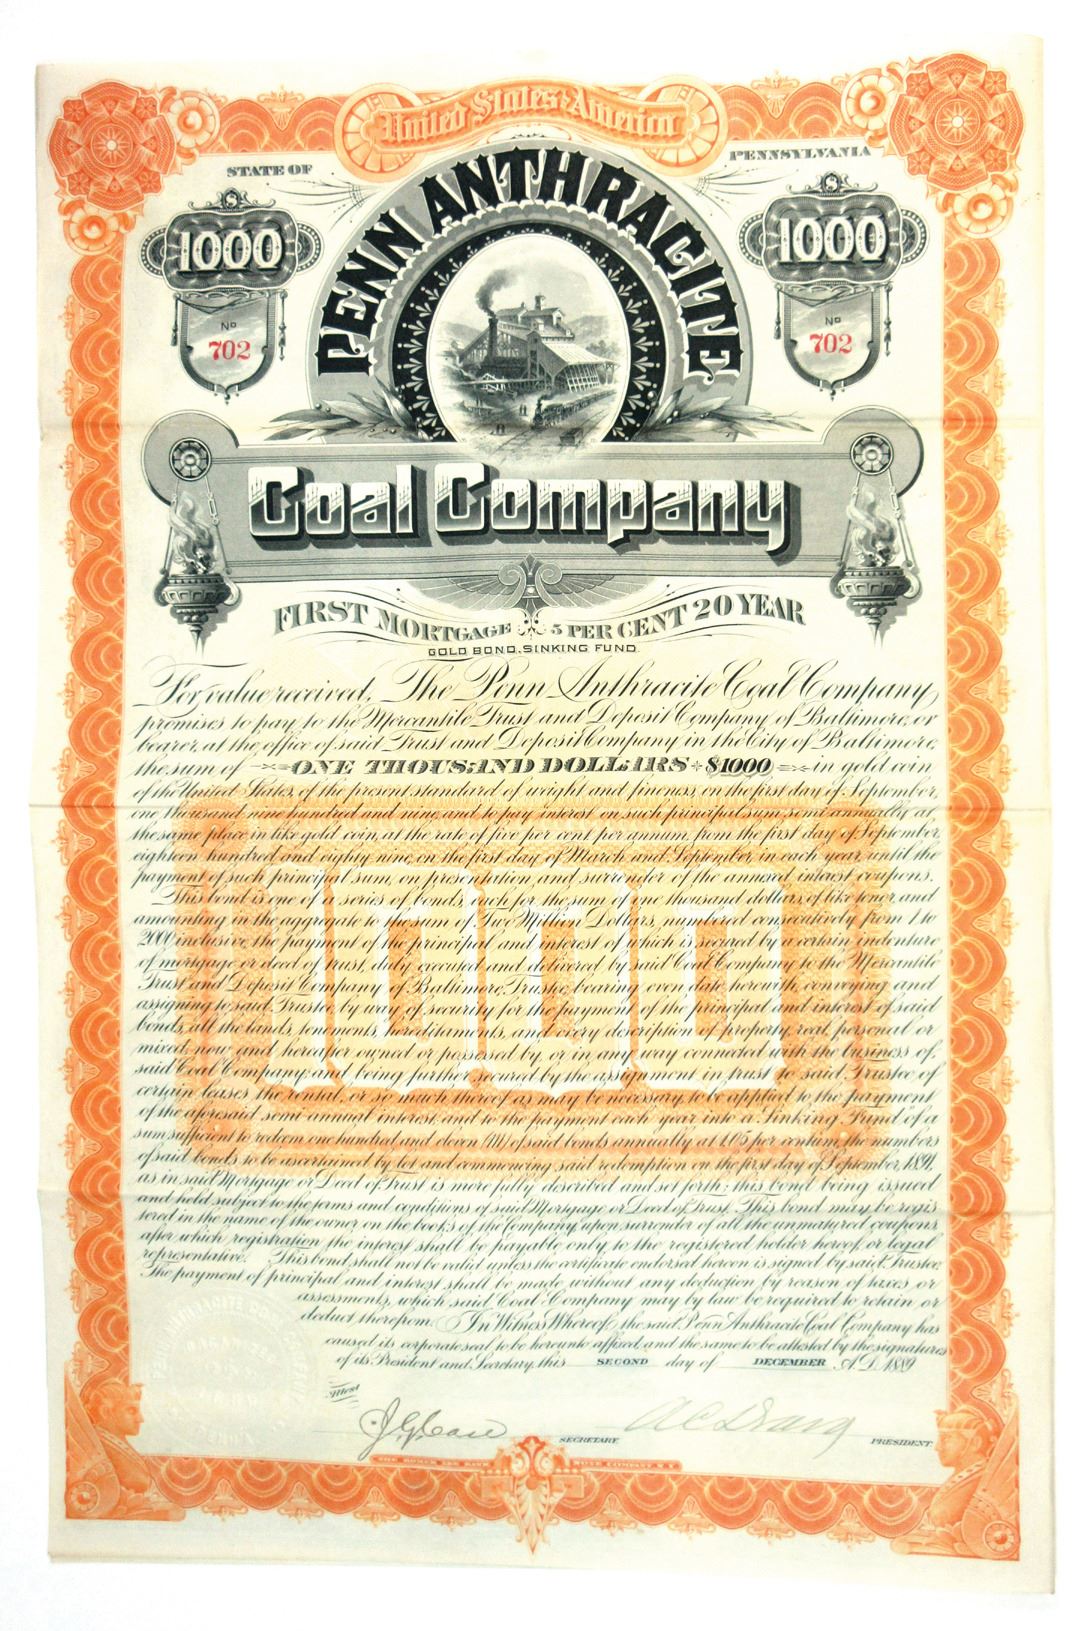 United States of America
STATE OF PENNSYLVANIA
PENN ANTHRACITE
1000 1000
No No
702 702
Coal Company
FIRST MORTGAGE 5 PER CENT 20 YEAR
GOLD BOND, SINKING FUND.
For value received, The Penn Anthracite Coal Company
promises to pay to the Mercantile Trust and Deposit Company of Baltimore, or
bearer, at the office of said Trust and Deposit Company in the City of Baltimore,
the sum of ONE THOUSAND DOLLARS $1000 in gold coin
of the United States, of the present standard of weight and fineness, on the first day of September,
one thousand nine hundred and nine, and to pay interest on such principal sum, semi-annually at
the same place in like gold coin, at the rate of five per cent per annum, from the first day of September,
eighteen hundred and eighty nine, on the first day of March and September, in each year, until the
payment of such principal sum, on presentation, and surrender of the annexed interest coupons.
This bond is one of a series of bonds, each for the sum of one thousand dollars, of like tenor, and
amounting in the aggregate to the sum of Two Million Dollars, numbered consecutively from 1 to
2000 inclusive, the payment of the principal and interest of which is secured by a certain indenture
of mortgage or deed of trust, duly executed and delivered by said Coal Company to the Mercantile
Trust and Deposit Company of Baltimore, Trustee, bearing even date herewith, conveying and
assigning to said Trustee, by way of security for the payment of the principal and interest of said
bonds, all the lands, tenements, hereditaments, and every description of property, real, personal or
mixed, now and hereafter owned or possessed by, or in any way connected with the business of,
said Coal Company; and being further secured by the assignment in trust to said Trustee of
certain leases, the rental, or so much thereof as may be necessary, to be applied to the payment
of the aforesaid semi-annual interest, and to the payment each year into a "Sinking Fund" of a
sum sufficient to redeem one hundred and eleven (111) of said bonds annually at 105 per centum, the numbers
of said bonds to be ascertained by lot and commencing said redemption on the first day of September, 1891,
as in said Mortgage or Deed of Trust is more fully described and set forth; this bond being issued
and held subject to the terms and conditions of said Mortgage or Deed of Trust. This bond may be regis-
tered in the name of the owner on the books of the Company, upon surrender of all the unmatured coupons,
after which registration the interest shall be payable only to the registered holder hereof, or legal
representative. This bond shall not be valid unless the certificate endorsed hereon is signed by said Trustee.
The payment of principal and interest shall be made without any deduction by reason of taxes or
assessments, which said Coal Company may by law be required to retain or
deduct therefrom. In Witness Whereof, the said Penn Anthracite Coal Company has
caused its corporate seal to be hereunto affixed, and the same to be attested by the signatures
of its President and Secretary, this SECOND day of DECEMBER A.D. 1889
Attest
SECRETARY PRESIDENT.
THE HOMER LEE BANK NOTE COMPANY, N.Y.